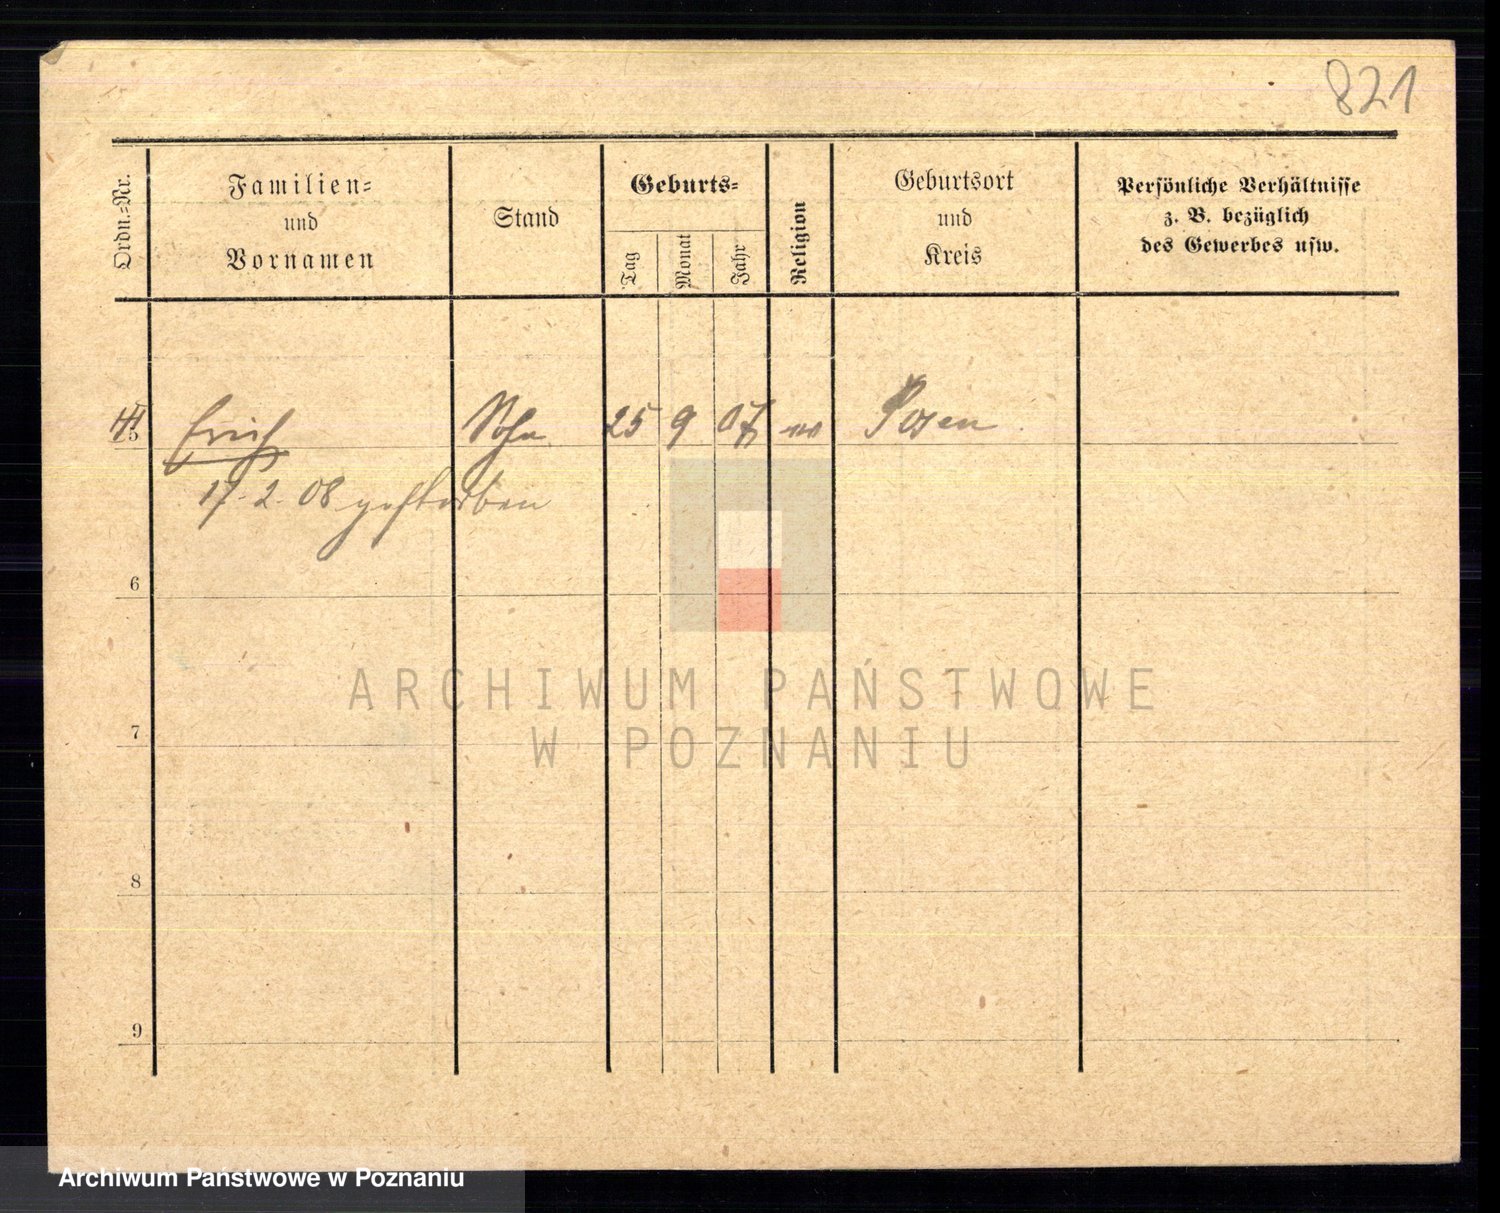 821
Ordn.-Nr.
Familien-
und
Vornamen
Stand
Geburts-
Tag
Monat
Jahr
Religion
Geburtsort
und
Kreis
Persönliche Verhältnisse
z. B. bezüglich
des Gewerbes usw.
5 Erich Sohn 25 9 07 Posen
17. 2. 08 gestorben
6
7
8
9
ARCHIWUM PAŃSTWOWE
W POZNANIU
Archiwum Państwowe w Poznaniu